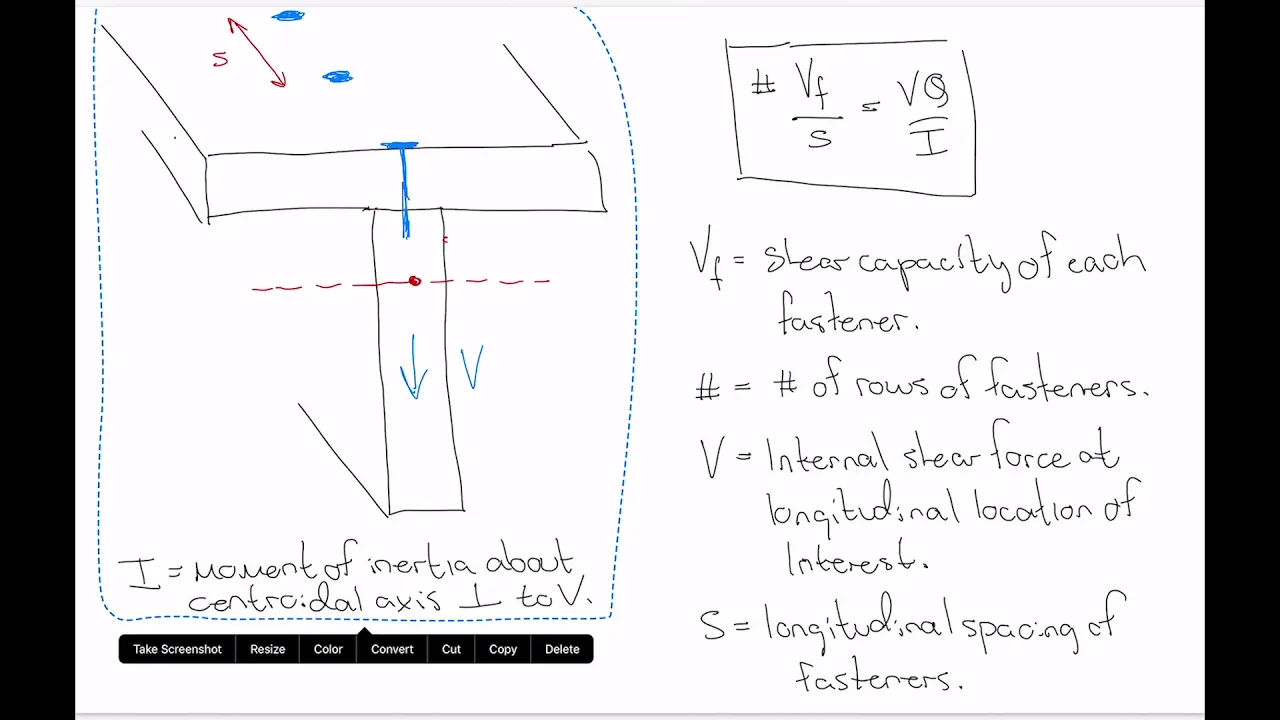 s
V
I = moment of inertia about
centroidal axis ⊥ to V.
Take Screenshot Resize Color Convert Cut Copy Delete
# Vf/S = VQ/I
Vf = shear capacity of each
fastener.
# = # of rows of fasteners.
V = Internal shear force at
longitudinal location of
Interest.
S = longitudinal spacing of
fasteners.